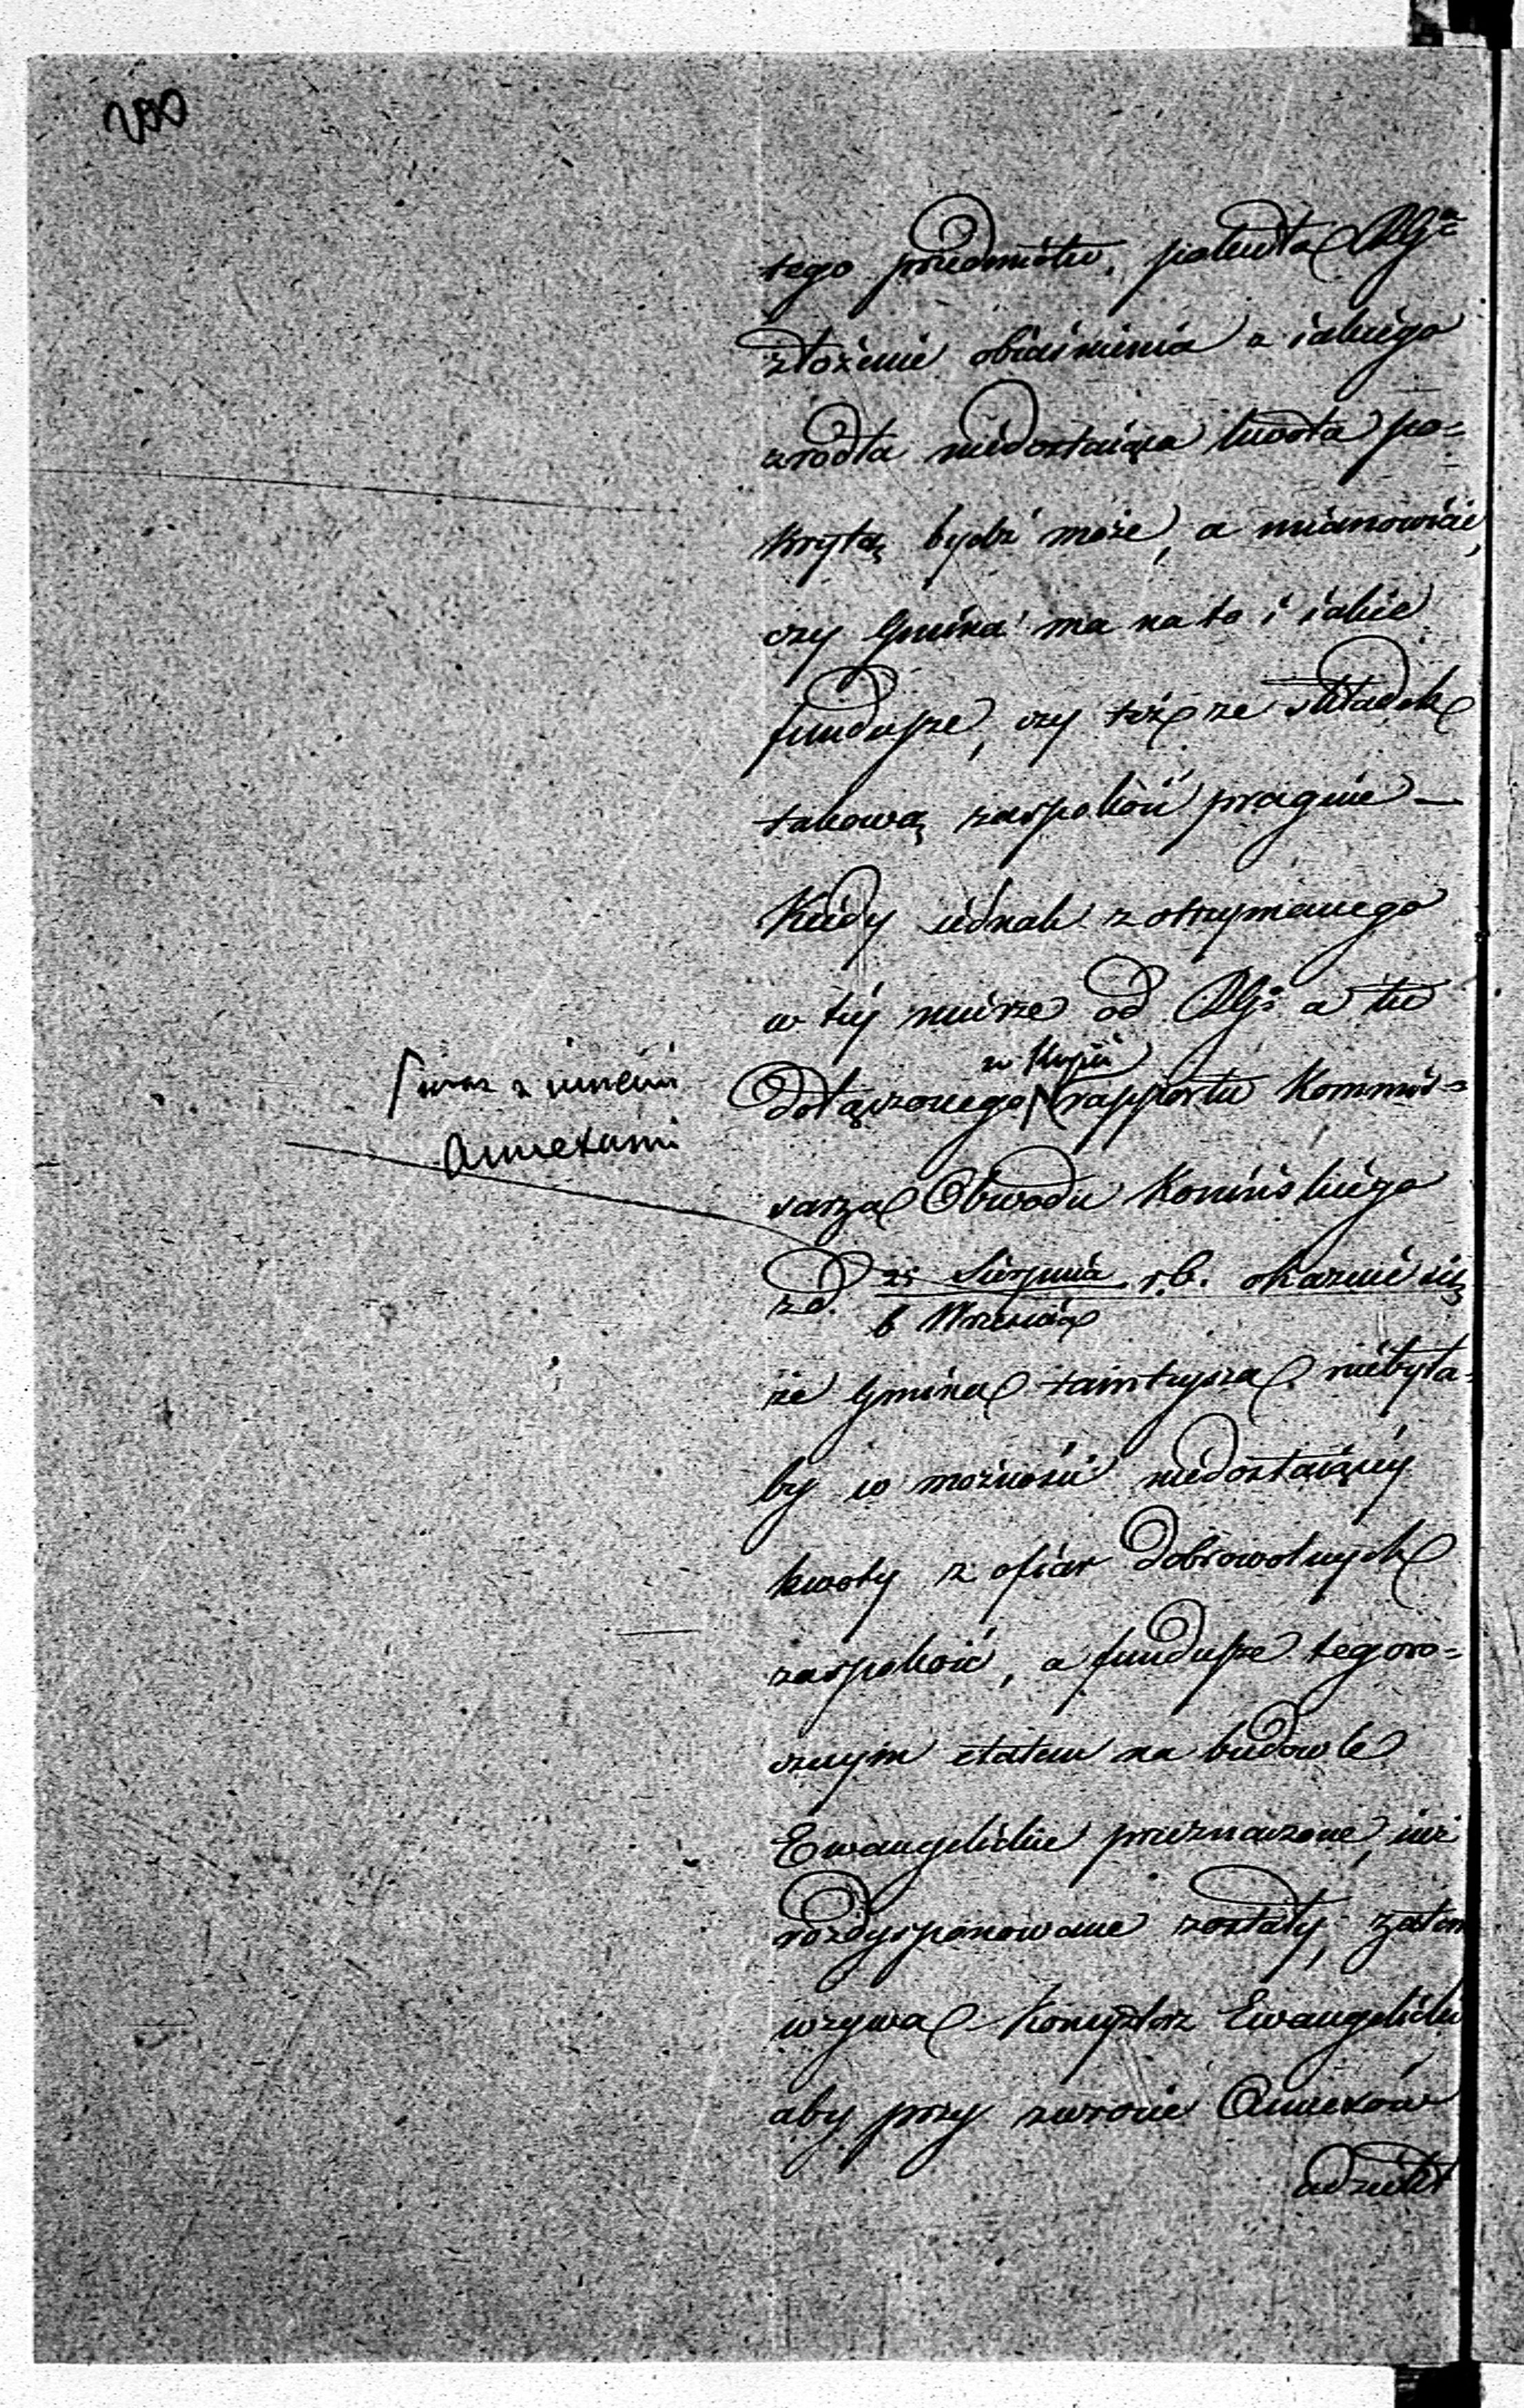 tego przedmiotu, poleciła RG^a
złożenie obiaśnienia z iakiego
zrodła niedostaiąca kwota po=
krytą bydź może, a mianowicie,
czy Gmina ma na to i iakie
fundusze, czy też ze składek
takową zaspokoić pragnie —
Kiedy iednak z otrzymanego
w tej mierze od RG^a a tu
w Kopii
Dołączonego rapportu Kommis=
wraz z innemi
Annexami
sarza Obwodu Konińskiego
z d. 25 Sierpnia r. b. okazuie się
6 Września
że Gmina tamtejsza niebyła
by w możności niedostaiącej
kwoty z ofiar dobrowolnych
zaspokoić, a fundusze tegoro=
cznym etatem na budowle
Ewangelickie przeznaczone, iuż
rozdysponowane zostały, zatem
wzywa Konsystorz Ewangelicki
aby przy zwrocie Annexów
udzielił